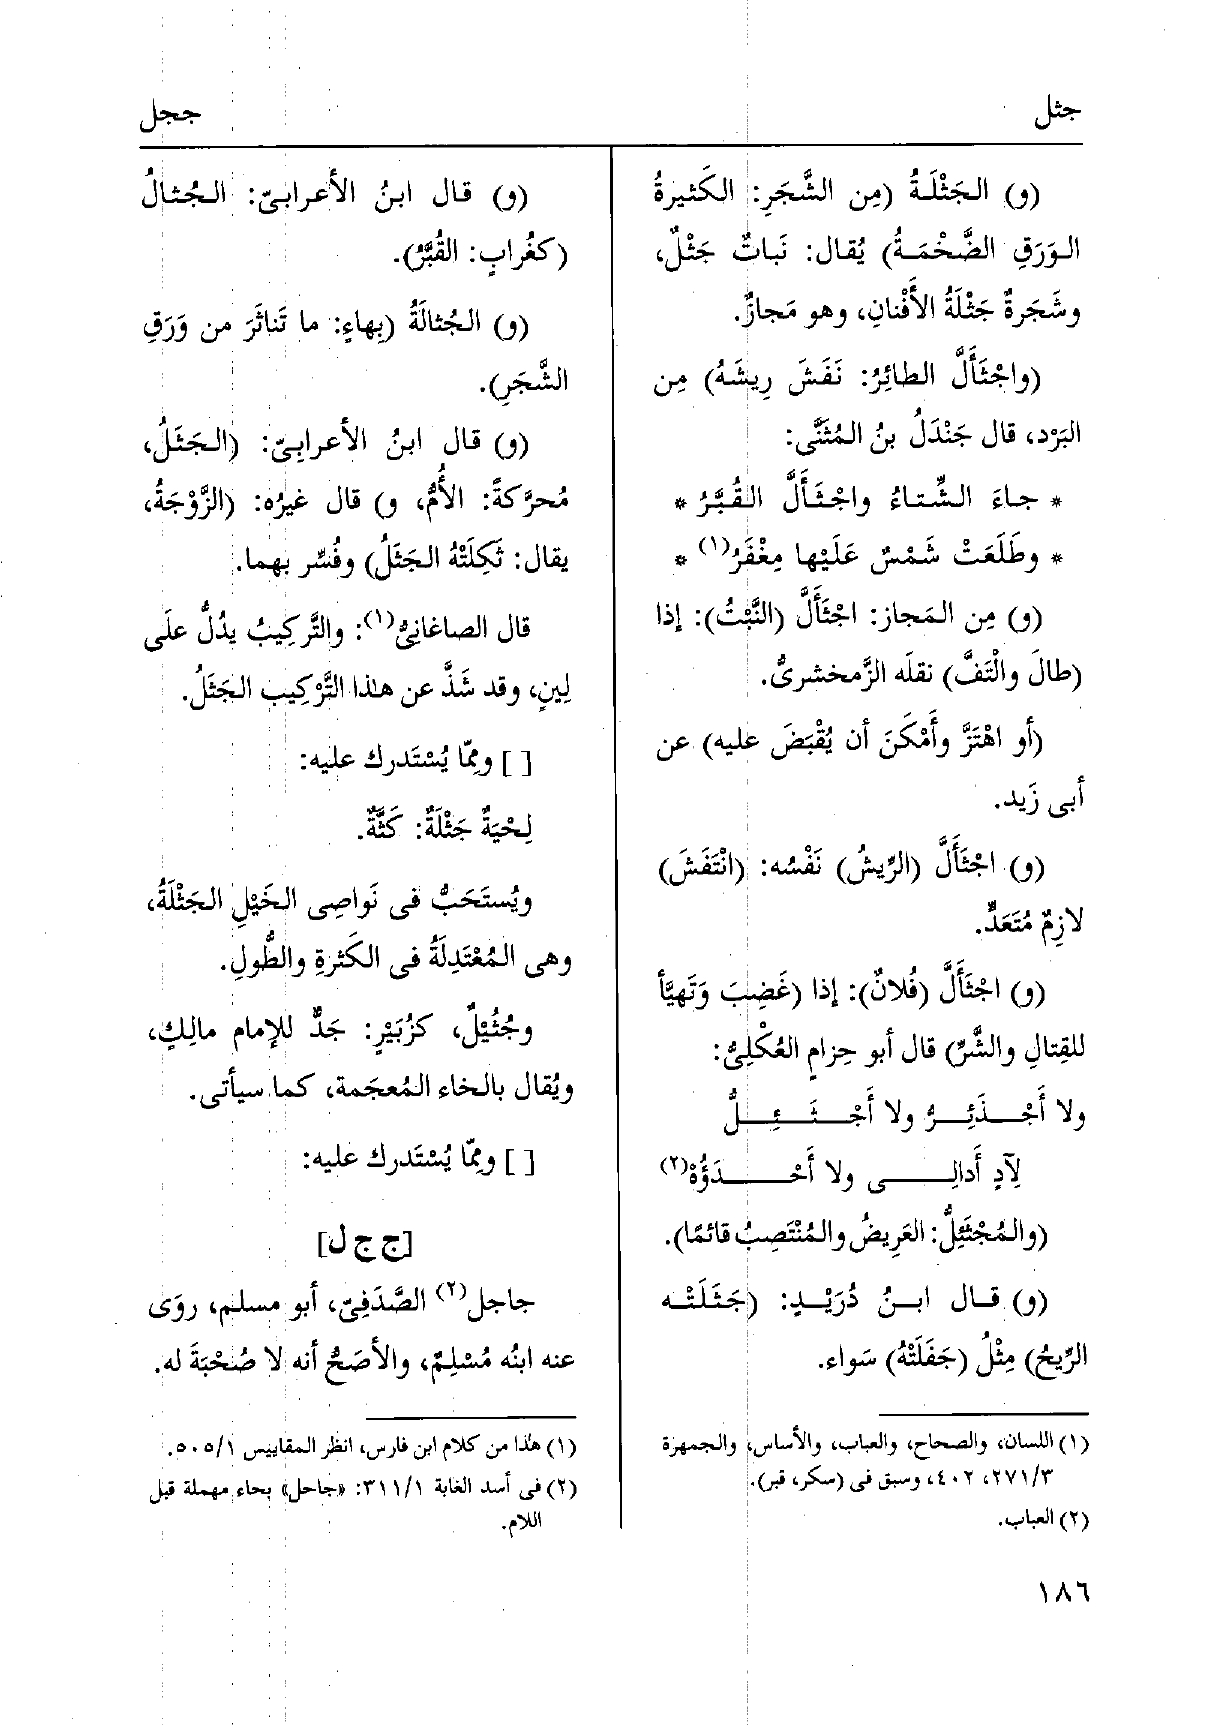 جثل
ججل
(و) الجَثْلَةُ (مِن الشَّجَرِ: الكَثيرةُ
الوَرَقِ الضَّخْمَةُ) يُقال: نَباتٌ جَثْلٌ،
وشَجَرةٌ جَثْلَةُ الأَفْنانِ، وهو مَجازٌ.
(واجْثَأَلَّ الطائِرُ: نَفَشَ رِيشَهُ) مِن
البَرْد، قال جَنْدَلُ بنُ المُثَنَّى:
* جاءَ الشِّتاءُ واجْثَأَلَّ القُبَّرُ *
* وطَلَعَتْ شَمْسٌ عَلَيْها مِغْفَرُ(١) *
(و) مِن المَجاز: اجْثَأَلَّ (النَّبْتُ): إذا
(طالَ والْتَفَّ) نقلَه الزَّمخشرىُّ.
(أو اهْتَزَّ وأَمْكَنَ أن يُقْبَضَ عليه) عن
أبى زَيد.
(و) اجْثَأَلَّ (الرِّيشُ) نَفْسُه: (انْتَفَشَ)
لازِمٌ مُتَعَدٍّ.
(و) اجْثَأَلَّ (فُلانٌ): إذا (غَضِبَ وَتَهيَّأ
للقِتالِ والشَّرِّ) قال أبو حِزامٍ العُكْلِىُّ:
ولا أَجْذَئِرُّ ولا أَجْثَئِلُّ
لِآدٍ أَدالِى ولا أَحْدَؤُهْ(٢)
(والمُجْثَئِلُّ: العَرِيضُ والمُنْتَصِبُ قائمًا).
(و) قال ابنُ دُرَيْدٍ: (جَثَلَتْه
الرِّيحُ) مِثْلُ (جَفَلَتْهُ) سَواء.
(١) اللسان، والصحاح، والعباب، والأساس، والجمهرة
٢٧١/٣، ٤٠٢، وسبق فى (سكر، قبر).
(٢) العباب.
(و) قال ابنُ الأعرابىّ: الجُثالُ
(كغُرابٍ: القُبَّرُ).
(و) الجُثالَةُ (بِهاءٍ: ما تَناثَرَ من وَرَقِ
الشَّجَرِ).
(و) قال ابنُ الأعرابِىّ: (الجَثَلُ،
مُحرَّكةً: الأُمُّ، و) قال غيرُه: (الزَّوْجَةُ،
يقال: ثَكِلَتْهُ الجَثَلُ) وفُسِّر بهما.
قال الصاغانِىُّ(١): والتَّركِيبُ يدُلُّ علَى
لِينٍ، وقد شَذَّ عن هٰذا التَّرْكِيب الجَثَلُ.
[ ] وممِّا يُسْتَدرك عليه:
لِحْيَةٌ جَثْلَةٌ: كَثَّةٌ.
ويُستَحَبُّ فى نَواصِى الخَيْلِ الجَثْلَةُ،
وهى المُعْتَدِلَةُ فى الكَثرةِ والطُّولِ.
وجُثَيْلٌ، كزُبَيْرٍ: جَدٌّ للإمام مالِكٍ،
ويُقال بالخاء المُعجَمة، كما سيأتى.
[ ] وممِّا يُسْتَدرك عليه:
[ج ج ل]
جاجل(٢) الصَّدَفِىّ، أبو مسلم، روَى
عنه ابنُه مُسْلِمٌ، والأصَحُّ أنه لا صُحْبَةَ له.
(١) هٰذا من كلام ابن فارس، انظر المقاييس ٥٠٥/١.
(٢) فى أسد الغابة ٣١١/١: «جاحل» بحاء مهملة قبل
اللام.
١٨٦